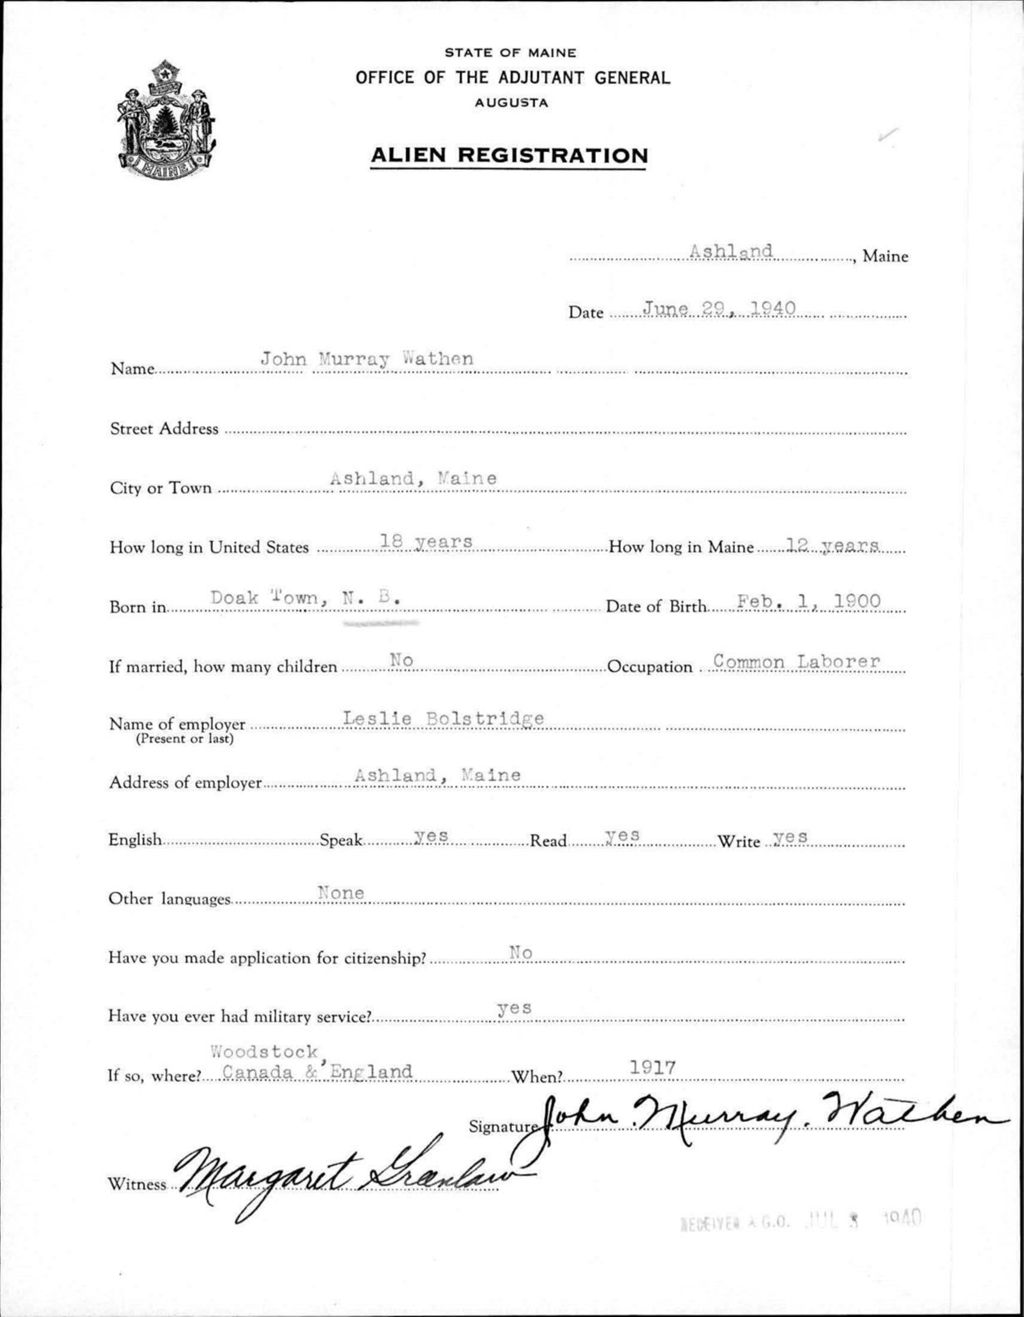 STATE OF MAINE
OFFICE OF THE ADJUTANT GENERAL
AUGUSTA
ALIEN REGISTRATION
MAINE
Ashland, Maine
Date June 29, 1940
Name John Murray Wathen
Street Address
City or Town Ashland, Maine
How long in United States 18 years How long in Maine 12 years
Born in Doak Town, N. B. Date of Birth Feb. 1, 1900
If married, how many children No Occupation Common Laborer
Name of employer Leslie Bolstridge
(Present or last)
Address of employer Ashland, Maine
English Speak yes Read yes Write yes
Other languages None
Have you made application for citizenship? No
Have you ever had military service? yes
Woodstock,
If so, where? Canada & England When? 1917
Signature John Murray Wathen
Witness Margaret Granlaw
RECEIVED A.G.O. JUL 3 1940